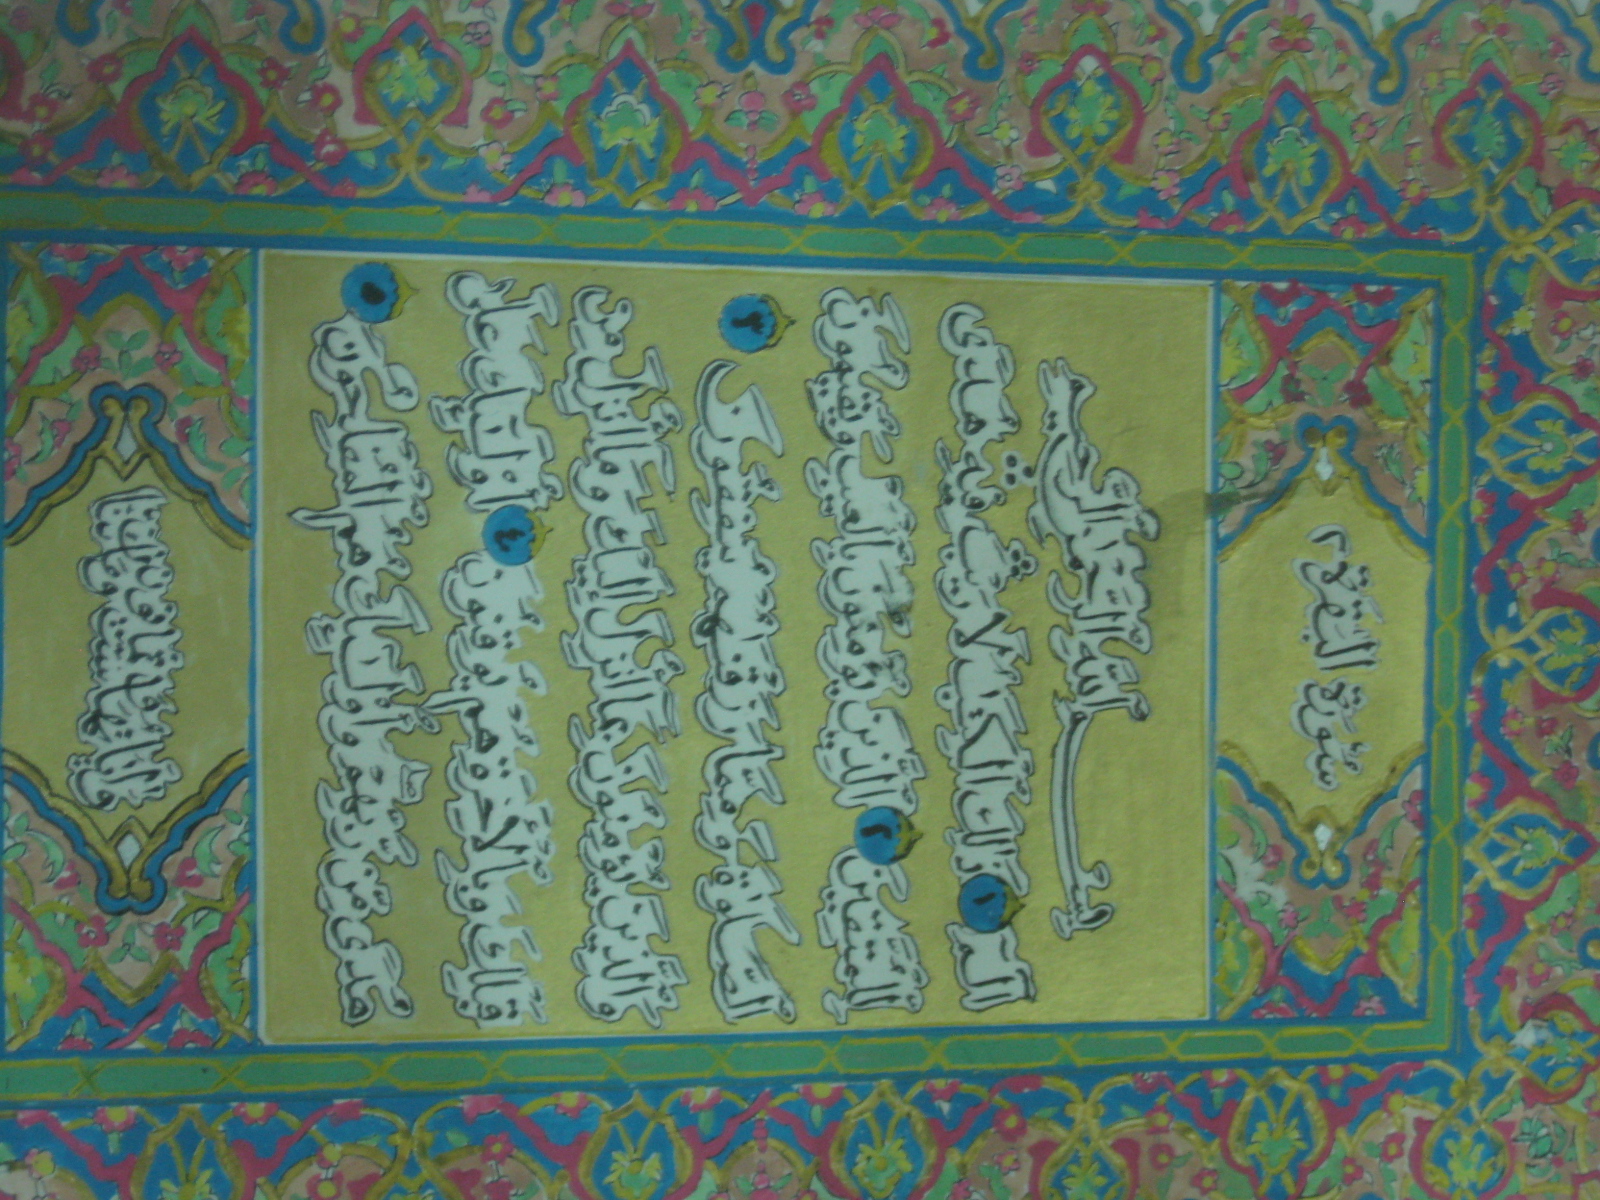 سُورَةُ الْبَقَرَةِ ٢
بِسْمِ اللَّهِ الرَّحْمَٰنِ الرَّحِيمِ
الٓمٓ ١ ذَٰلِكَ الْكِتَابُ لَا رَيْبَ فِيهِ هُدًى
لِلْمُتَّقِينَ ٢ الَّذِينَ يُؤْمِنُونَ بِالْغَيْبِ وَيُقِيمُونَ
الصَّلَوٰةَ وَمِمَّا رَزَقْنَاهُمْ يُنْفِقُونَ ٣
وَالَّذِينَ يُؤْمِنُونَ بِمَا أُنْزِلَ إِلَيْكَ وَمَا أُنْزِلَ مِنْ
قَبْلِكَ وَبِالْآخِرَةِ هُمْ يُوقِنُونَ ٤ أُولَٰئِكَ عَلَىٰ
هُدًى مِنْ رَبِّهِمْ وَأُولَٰئِكَ هُمُ الْمُفْلِحُونَ ٥